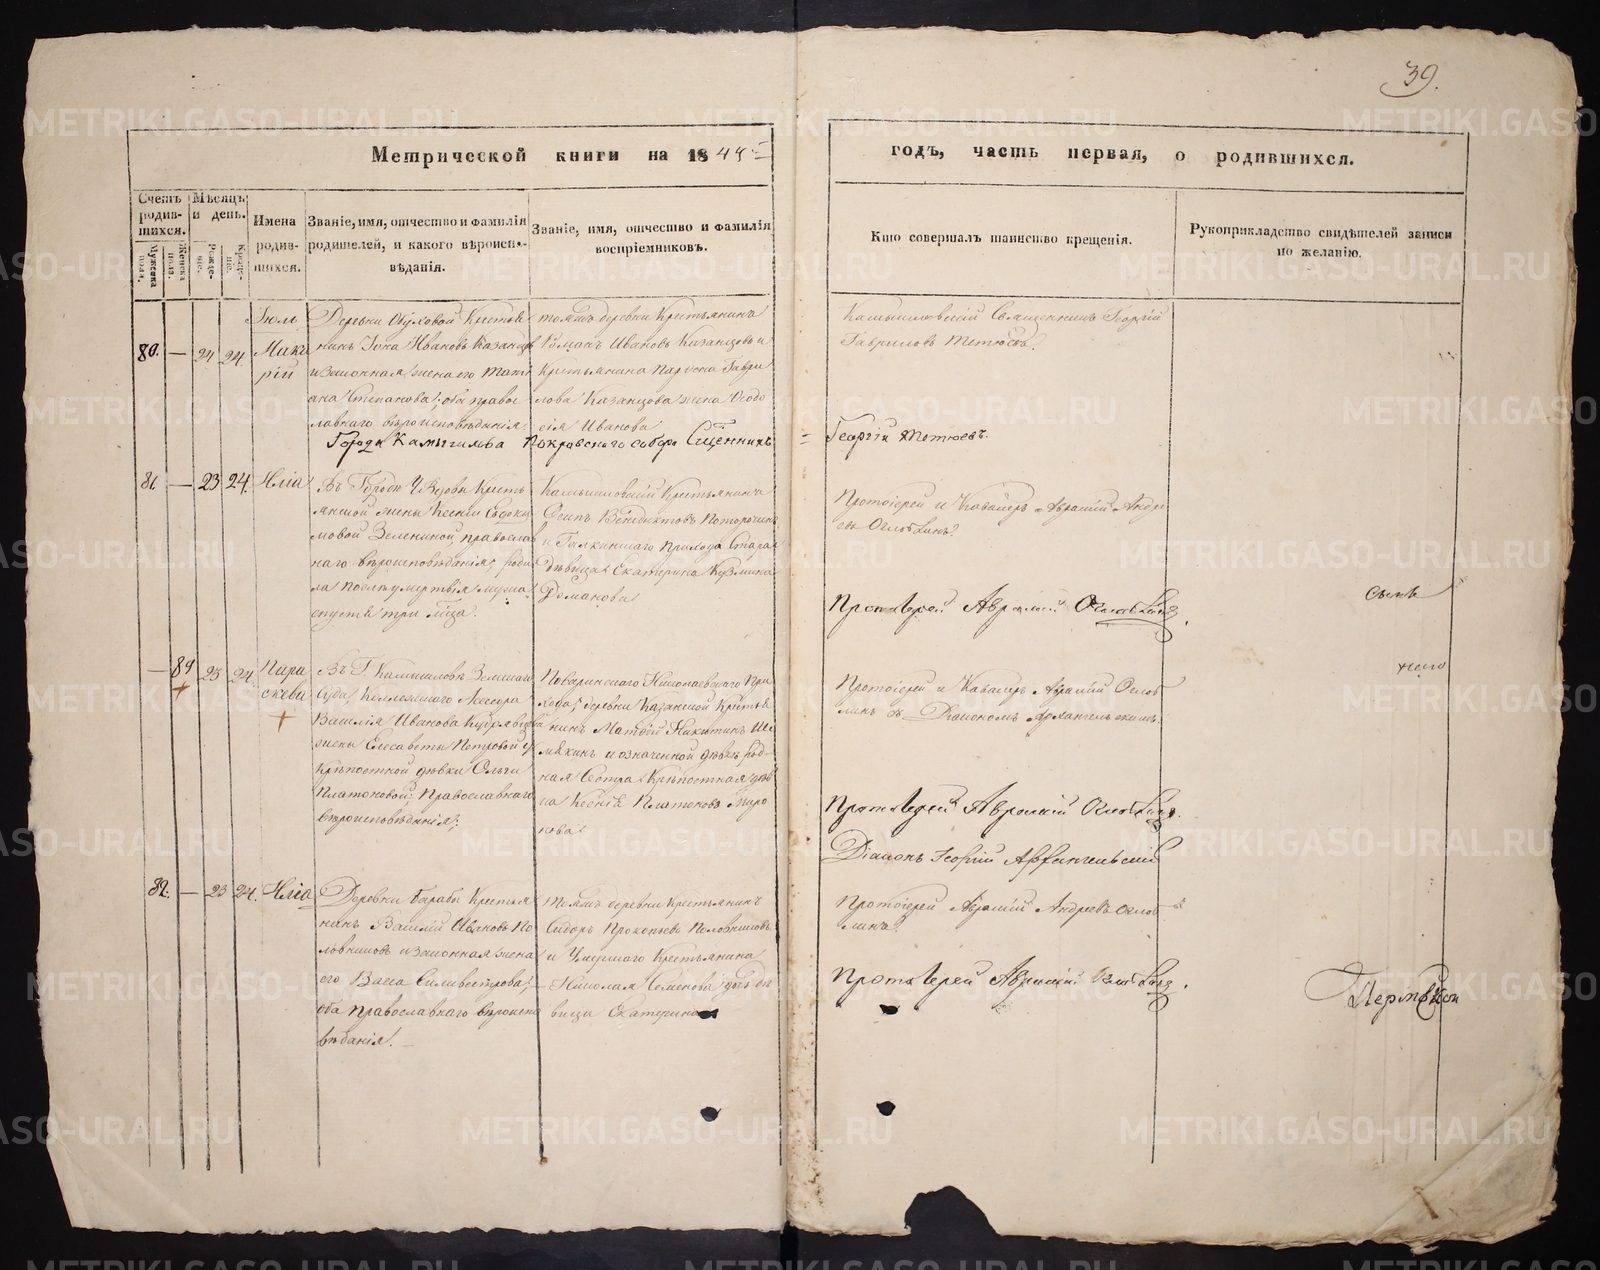 39.
Метрической книги на 1844
годъ, часть первая, о родившихся.
Счетъ родив-шихся.
Мужеска пола.
Женска пола.
Мѣсяцъ и день.
Рожде-нія.
Креще-нія.
Имена
родив-
шихся.
Званіе, имя, отчество и фамилія
родителей, и какого вѣроиспо-
вѣданія.
Званіе, имя, отчество и фамилія
воспріемниковъ.
Кто совершалъ таинство крещенія.
Рукоприкладство свидѣтелей записи
по желанію.
Іюль
80. — 24 24. Мака
рій
Деревни Обуховой Крестья
нинъ Іона Ивановъ Казанцовъ
и законная жена его Тать
яна Степанова; оба право
славнаго вѣроисповѣданія.
тояжъ деревни Крестьянинъ
Романъ Ивановъ Казанцовъ и
Крестьянина Ларіона Гаври
лова Казанцова жена Ѳеодо
сія Иванова
Камышловскій Священникъ Георгій
Гавриловъ Тетюевъ.
Города Камышлова Покровскаго собора Сщенникъ
Георгій Тетюевъ.
81. — 23 24. Илія
Въ Городѣ Вдовы Кресть
янской жены Ксеніи Евдоки
мовой Зелениной православ
наго вѣроисповѣданія; роди
ла послѣ умертвія мужа
спустя три мца.
Камышловскій Крестьянинъ
Осипъ Венедиктовъ Поторочинъ
и Галкинскаго прихода
Дѣвица Екатерина Кузмина
Романова
Протоіерей и Кавалеръ Аврамій Андре
евъ Оглоблинъ.
Протоіерей Аврамій Оглоблинъ.
— 84 23 24 Пара
скева
Въ Г. Камышловѣ
Суда, Коллежскаго Ассесора
Василія Иванова
жены Елисаветы Петровой
крѣпостной дѣвки Ольги
Платоновой; Православнаго
вѣроисповѣданія;
Николаевскаго При
хода; деревни Казанской Крестья
нинъ Матвѣй Никитинъ
и означенной дѣвки род-
ная Сестра Крѣпостная дѣв
ка Ксенія Платонова Миро
нова
Протоіерей и Кавалеръ Аврамій Оглоб
линъ съ Діакономъ Архангельскимъ.
Протоіерей Аврамій Оглоблинъ.
Діаконъ Георгій Архангельскій
82. — 23 24. Илія
Деревни Барабы Крестья
нинъ Василій Ивановъ По
ловниковъ и законная жена
его Васса Силивестрова;
оба православнаго вѣроиспо
вѣданія.
тояжъ деревни Крестьянинъ
Сидоръ Прокопьевъ Половниковъ
и Умершаго Крестьянина
Николая Семенова дочь дѣ
вица Екатерина
Протоіерей Аврамій Андреевъ Оглоб
линъ.
Протоіерей Аврамій Оглоблинъ.
METRIKI.GASO-URAL.RU